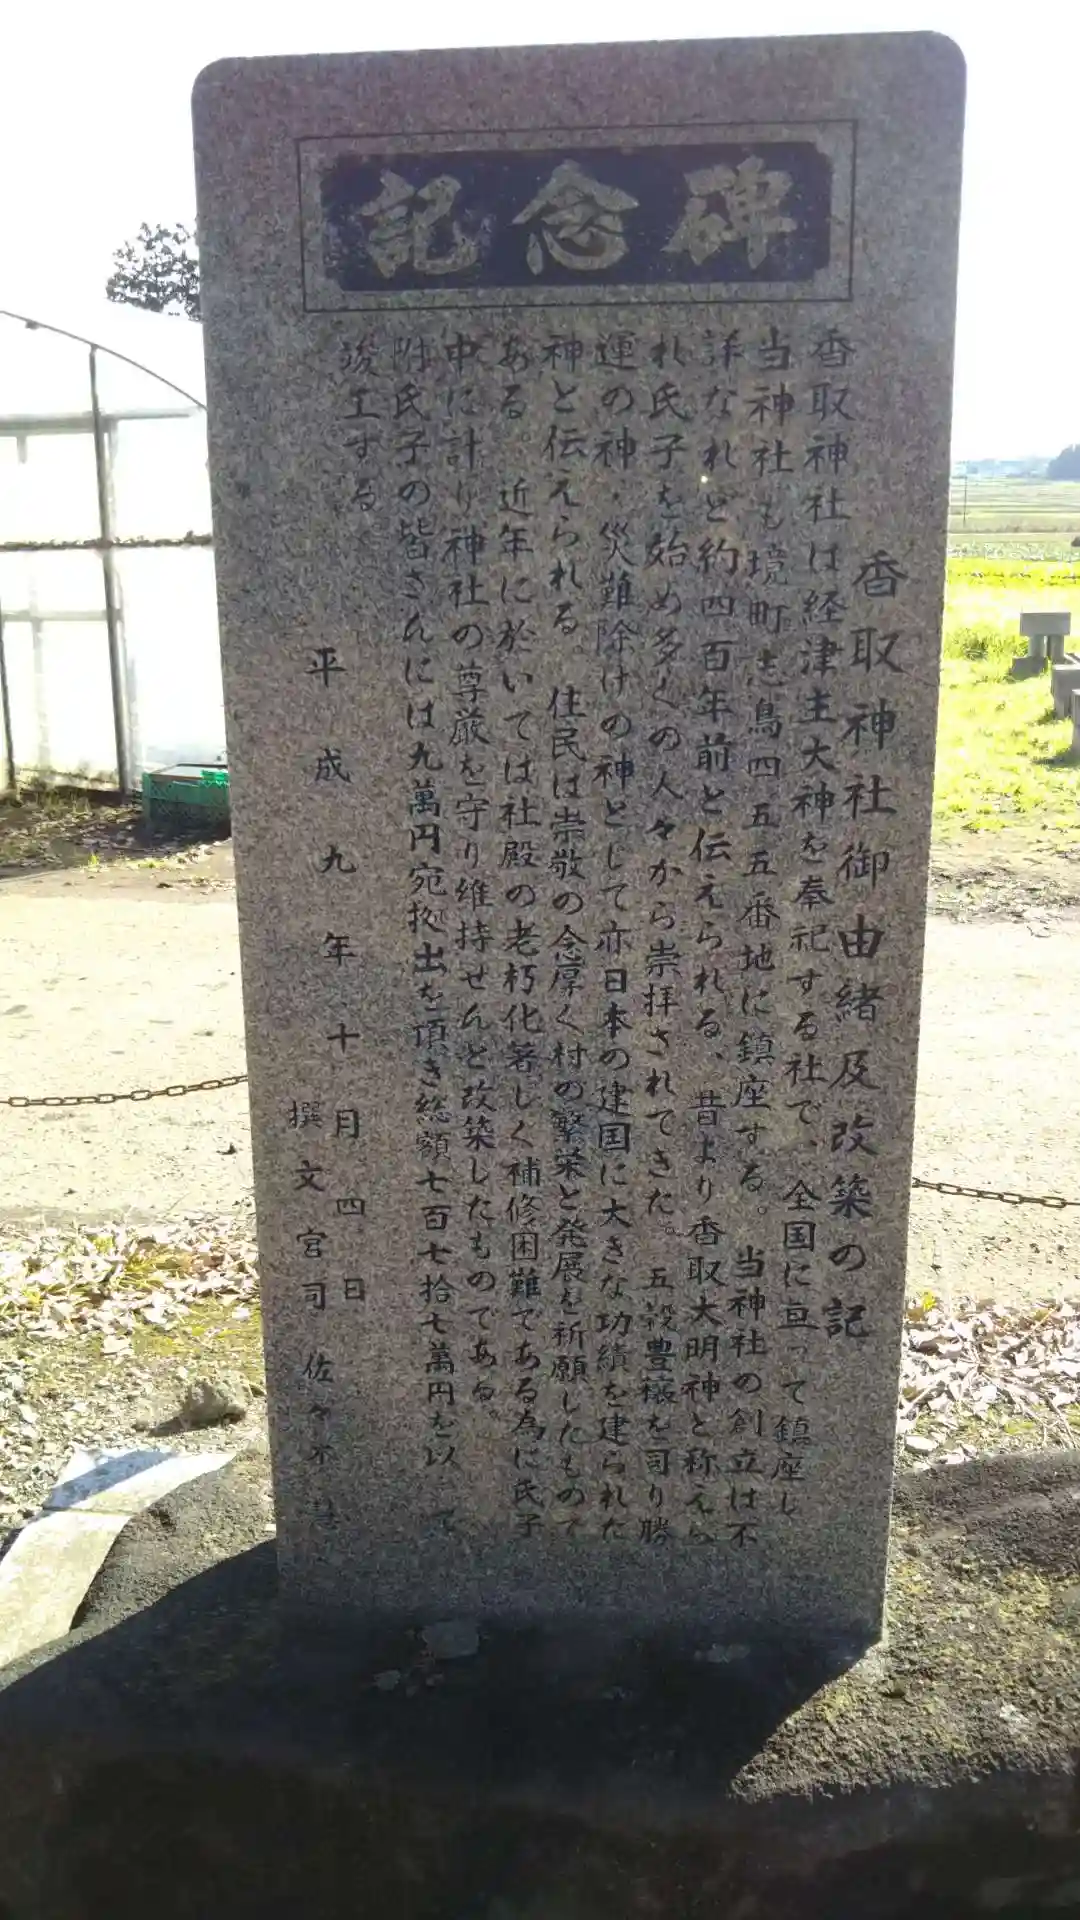 碑念記
香取神社御由緒及改築の記
香取神社は経津主大神を奉祀する社で、全国に亘って鎮座し
当神社も境町志鳥四五五番地に鎮座する。当神社の創立は不
詳なれど約四百年前と伝えられる、昔より香取大明神と称えら
れ氏子を始め多くの人々から崇拝されてきた。五穀豊穣を司り勝
運の神・災難除けの神として亦日本の建国に大きな功績を建られた
神と伝えられる。住民は崇敬の念厚く村の繁栄と発展を祈願したもので
ある。近年に於いては社殿の老朽化著しく補修困難である為に氏子
中に計り神社の尊厳を守り維持せんと改築したものである。
附氏子の皆さんには九萬円宛拠出を頂き総額七百七拾七萬円を以って
竣工する
平成九年十月四日
撰文宮司佐々木